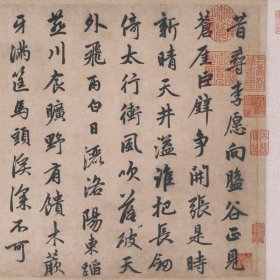 昔尋李愿向盤谷正見
蒼崖巨爭開張是時
新晴天井溢誰把長劍
倚太行衝風吹落破天
外飛雨白日灑洛陽東蹈
燕川食曠野有饋木蕨
牙滿筐馬頭溪深不可